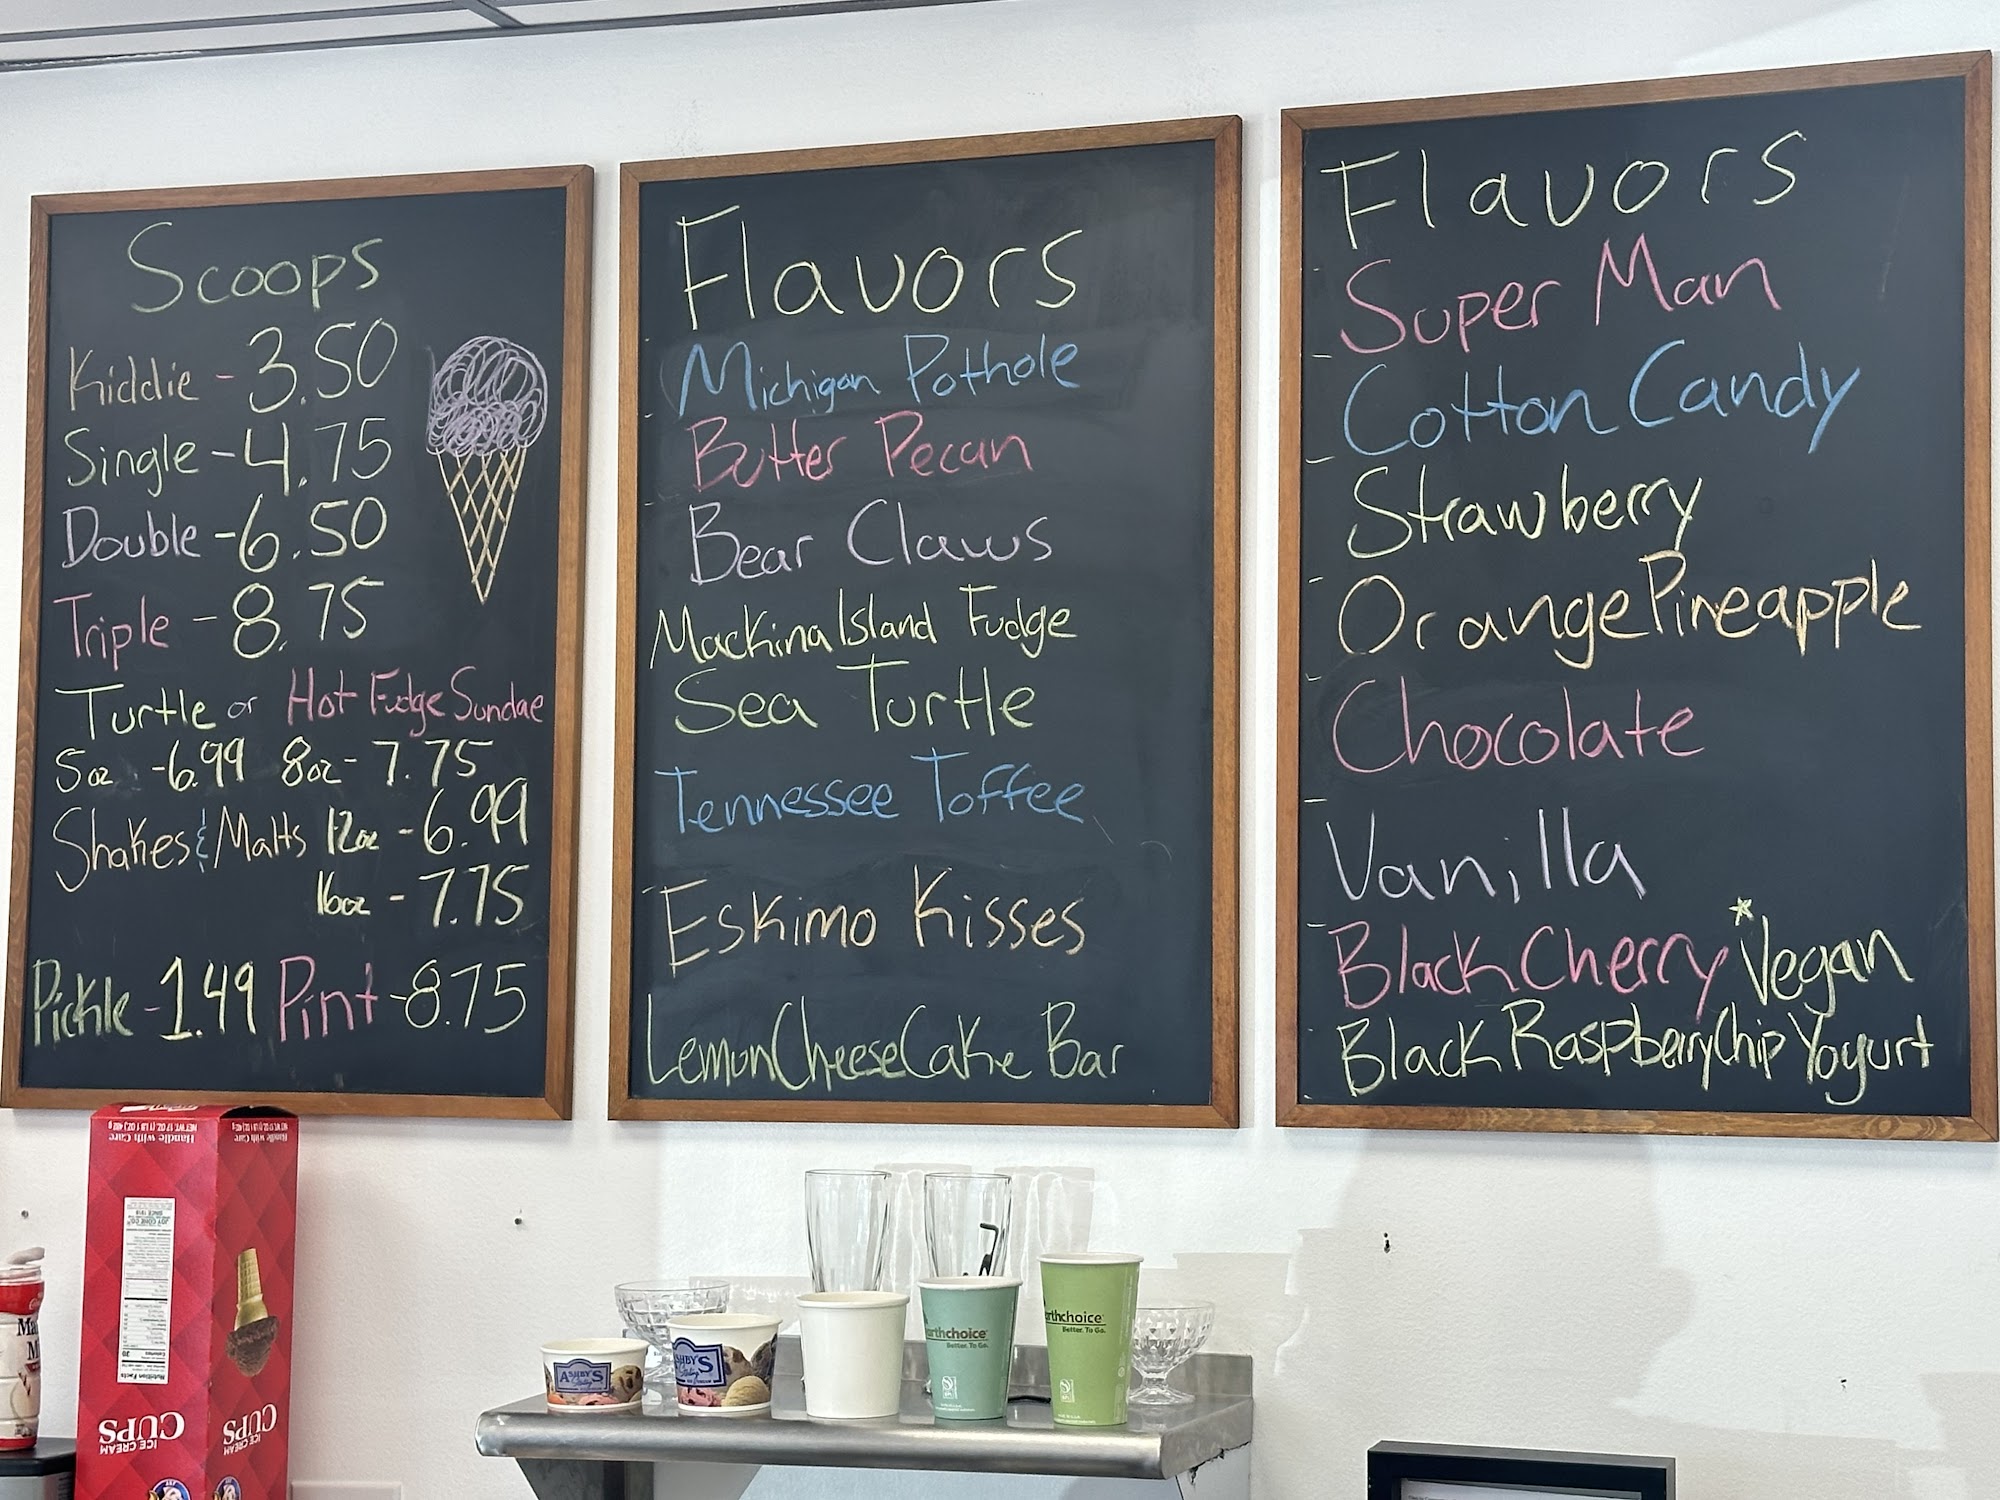 Scoops
Kiddie - 3.50
Single - 4.75
Double - 6.50
Triple - 8.75
Turtle or Hot Fudge Sundae
5oz - 6.99 8oz - 7.75
Shakes & Malts 12oz - 6.99
16oz - 7.75
Pickle - 1.49 Pint - 8.75
Flavors
Michigan Pothole
Butter Pecan
Bear Claws
Mackina Island Fudge
Sea Turtle
Tennessee Toffee
Eskimo Kisses
Lemon Cheese Cake Bar
Flavors
Super Man
Cotton Candy
Strawberry
Orange Pineapple
Chocolate
Vanilla
Black Cherry *Vegan
Black Raspberry Chip Yogurt
Handle with Care
NET WT. 17 OZ. (1 LB 1 OZ.)
Handle with Care
JOY CONE CO.
SINCE 1918
Nutrition Facts
ICE CREAM
CUPS
ICE CREAM
CUPS
ASHBY'S
SHBY'S
arthchoice
Better. To Go.
arthchoice
Better. To Go.